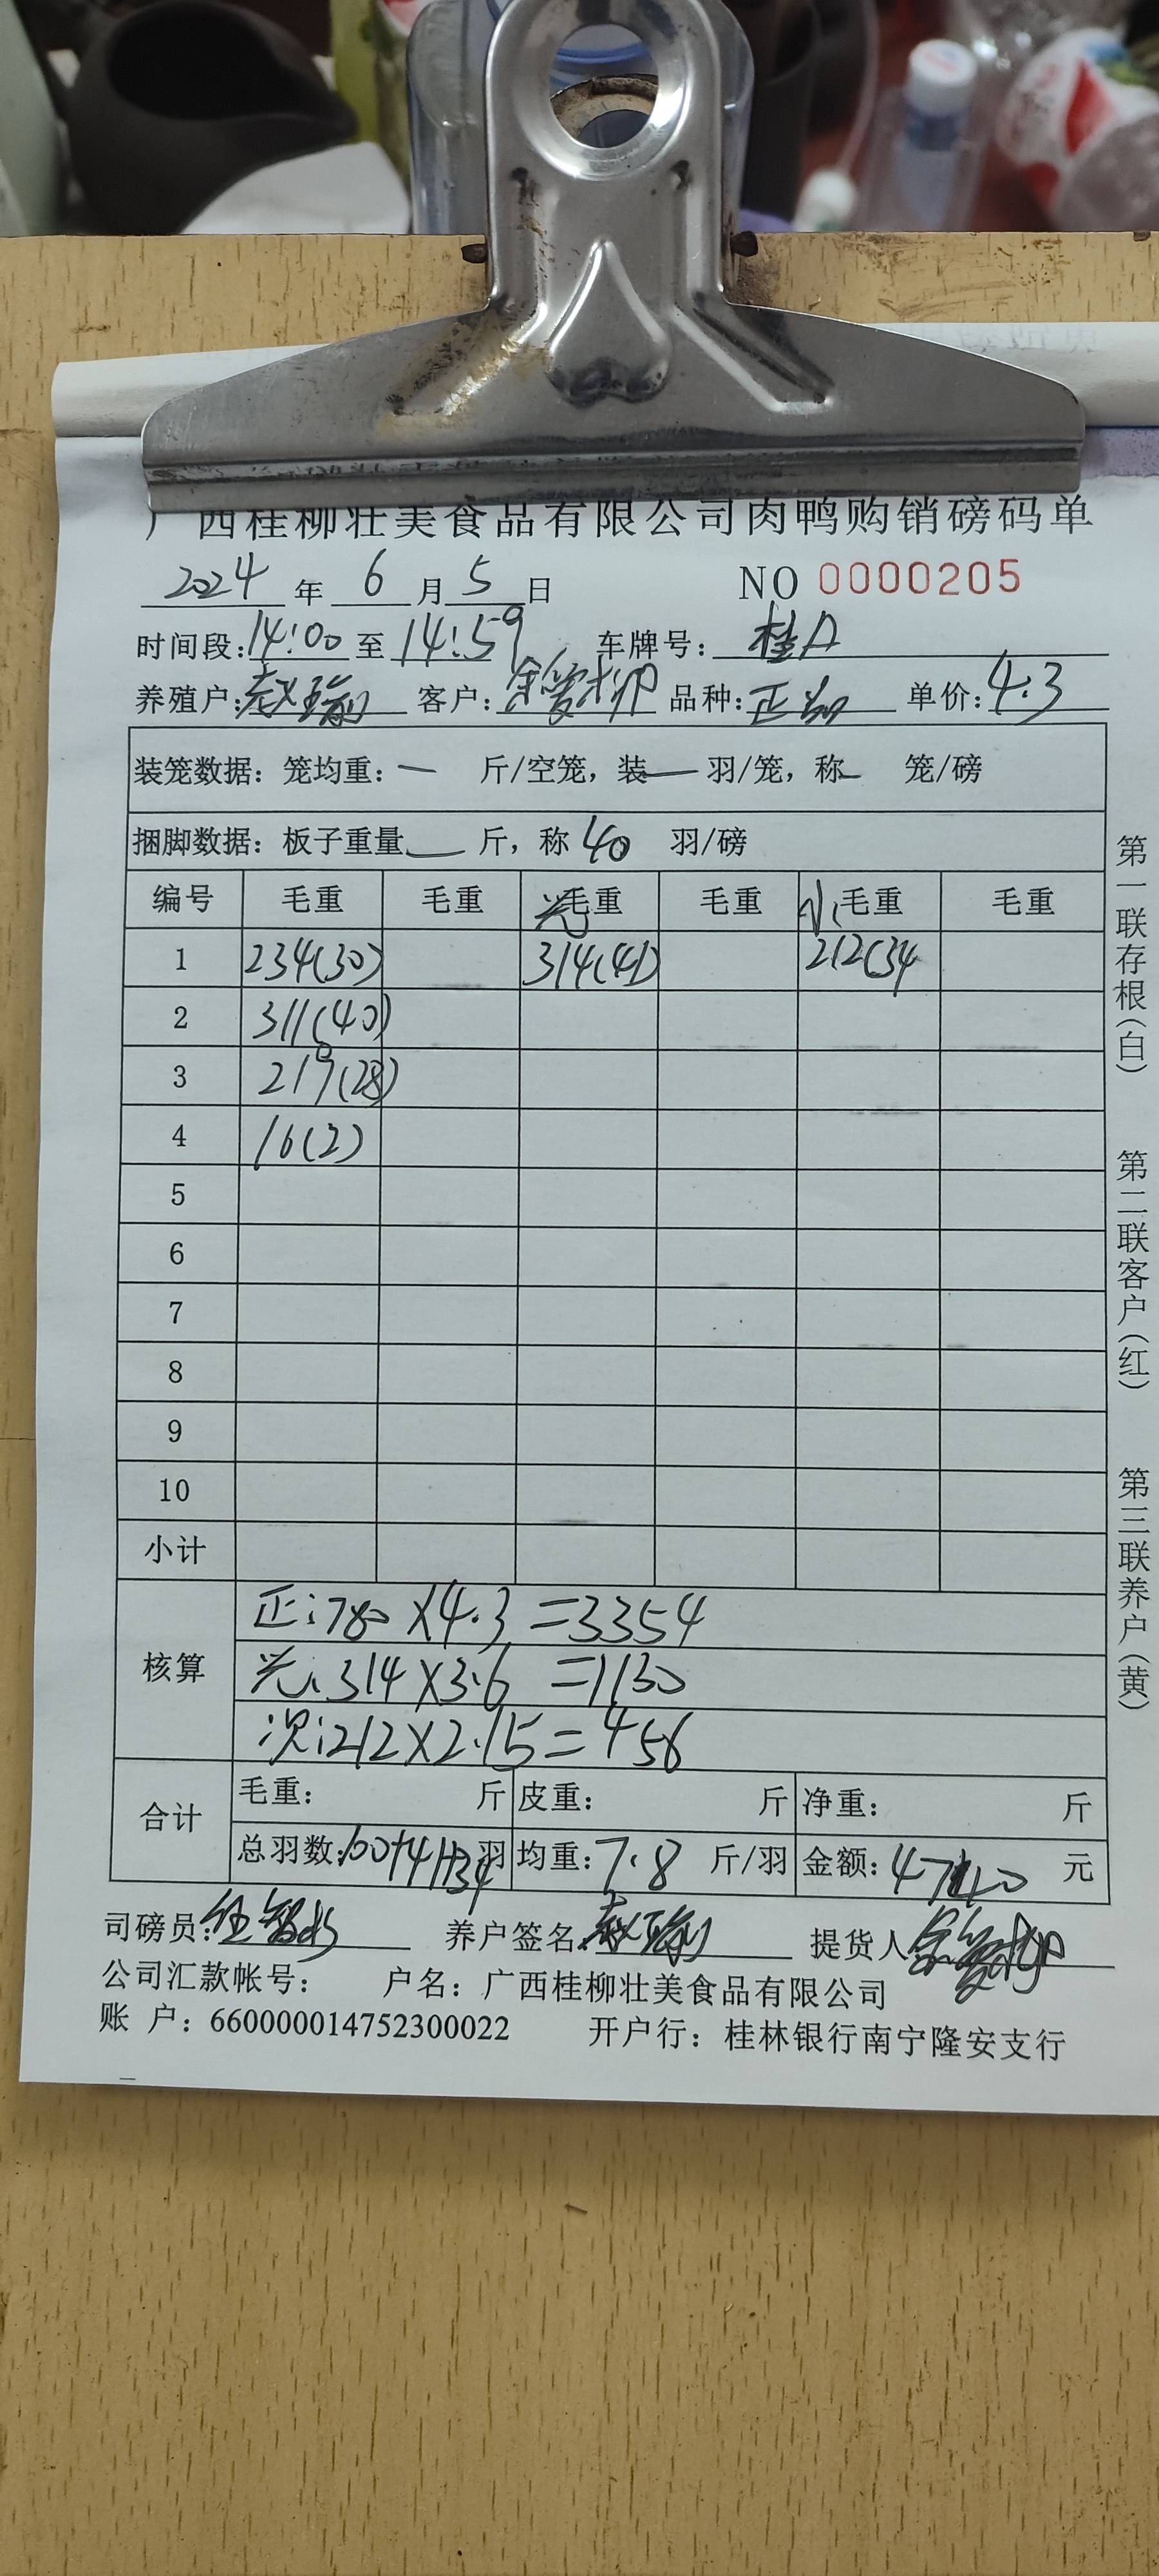 广西桂柳壮美食品有限公司肉鸭购销磅码单
2024 年 6 月 5 日 NO 0000205
时间段: 14:00 至 14:59 车牌号: 桂A
养殖户: 客户: 品种: 正 单价: 4.3
装笼数据: 笼均重: — 斤/空笼, 装 — 羽/笼, 称 — 笼/磅
捆脚数据: 板子重量 — 斤, 称 40 羽/磅
编号 毛重 毛重 毛重 毛重 小 毛重 毛重
1 234(30) 314(41) 212(34
2 311(40)
3 219(28)
4 16(2)
5
6
7
8
9
10
小计
核算
正: 780 X4.3 =3354
314X3.6 =1130
次:212X2.15=456
合计
毛重: 斤 皮重: 斤 净重: 斤
总羽数: 100+41+34 羽 均重: 7.8 斤/羽 金额: 元
司磅员: 养户签名: 提货人
公司汇款帐号: 户名: 广西桂柳壮美食品有限公司
账 户: 660000014752300022 开户行: 桂林银行南宁隆安支行
第一联存根(白)
第二联客户(红)
第三联养户(黄)